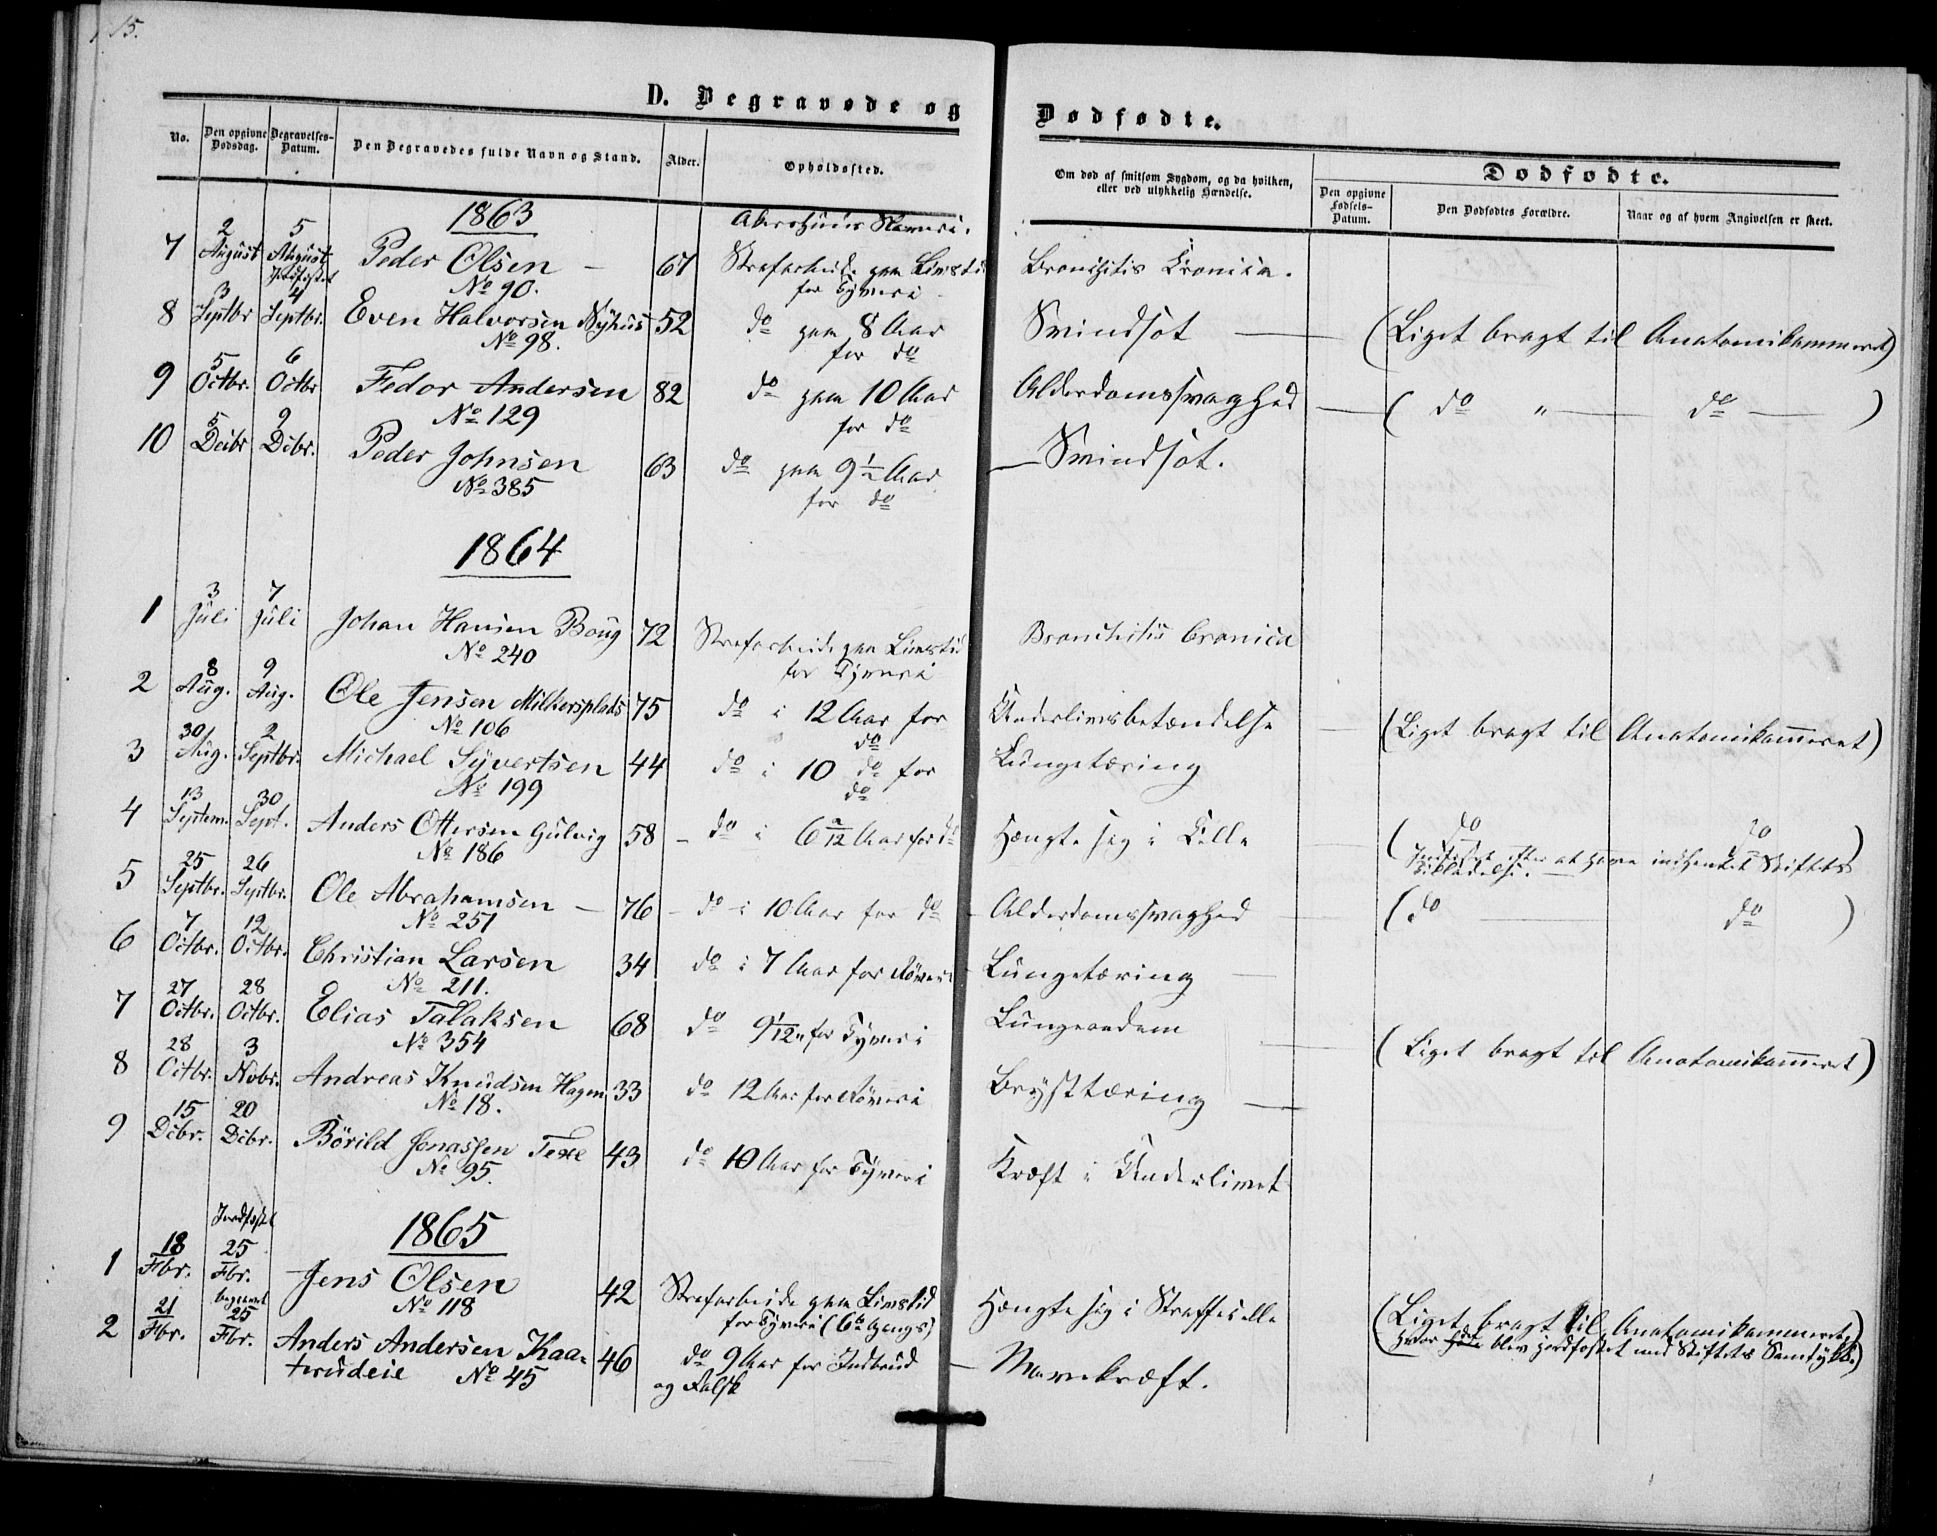 15.
D. Begravede og Dødfødte.
No. Den opgivne Dødsdag. Begravelses-Datum. Den Begravedes fulde Navn og Stand. Alder. Opholdssted. Om død af smitsom Sygdom, og da hvilken, eller ved ulykkelig Hændelse. Dødfødte.
Den opgivne Fødsels-Datum. Den Dødfødtes Forældre. Naar og af hvem Angivelsen er skeet.
1863
Akershuus Slaveri.
7 2 August 5 August Jordfæstet Peder Olsen – 67 Strafarbeide paa Livstid Bronchitis Cronica.
No 90. for Tyveri
8 3 Septbr 4 Septbr. Even Halvorsen Nyhus 52 do paa 8 Aar Svindsot — (Liget bragt til Anatomikammeret)
No 98. for do
9 5 Octbr. 6 Octbr Fedor Andersen 82 do paa 10 Aar Alderdomssvaghed — ( do " — do — )
No 129 for do
10 5 Decbr 9 Dcbr. Peder Johnsen 63 do paa 9½ Aar — Svindsot.
No 385 for do
1864
1 3 Juli 7 Juli Johan Hansen Boug 72 Strafarbeide paa Livstid Bronchitis Cronica
No 240 for Tyveri
2 8 Aug. 9 Aug. Ole Jensen Milkersplads 75 do i 12 Aar for Underlivsbetændelse — (Liget bragt til Anatomikammeret)
No 106 do
3 30 Aug. 2 Septbr. Michael Syvertsen 44 do i 10 do for Lungetæring
No 199 do
4 13 Septem. 30 Sept. Anders Ottersen Gulvig 58 – do i 6 Aar for do Hængte sig i Celle ( do do )
No 186 Jordfæstet efter at have indhentet Stiftets
5 25 Septbr. 26 Septbr. Ole Abrahamsen — 76 – do i 10 Aar for do – Alderdomssvaghed (do — do )
No 251
6 7 Octbr. 12 Octbr. Christian Larsen 34 do i 7 Aar for Røveri Lungetæring —
No 211.
7 27 Octbr. 28 Octbr. Elias Talaksen 68 do 9 1/12 " for Tyveri Lungeoedem — (Liget bragt til Anatomikammeret)
No 354
8 28 Octbr. 3 Novbr. Andreas Knudsen Hagen 33 do 12 Aar for Røveri Brysttæring —
No 18.
9 15 Dcbr. 20 Dcbr. Børild Jonassen Texe 43 do 10 Aar for Tyveri Kræft i Underlivet
No 95.
1865
Jordfæstet
1 18 Fbr. 25 Fbr. Jens Olsen 42 Strafarbeide paa Livstid Hængte sig i Straffecelle (Liget bragt til Anatomikammeret,
No 118 for Tyveri (6te Gangs) hvor han blev jordfæstet med Stiftets Samtykke.)
2 21 Fbr. begravet 25 Fbr. Anders Andersen Kaa- 46 do 9 Aar for Indbrud — Mavekræft.
terudeie No 45 og Falsk